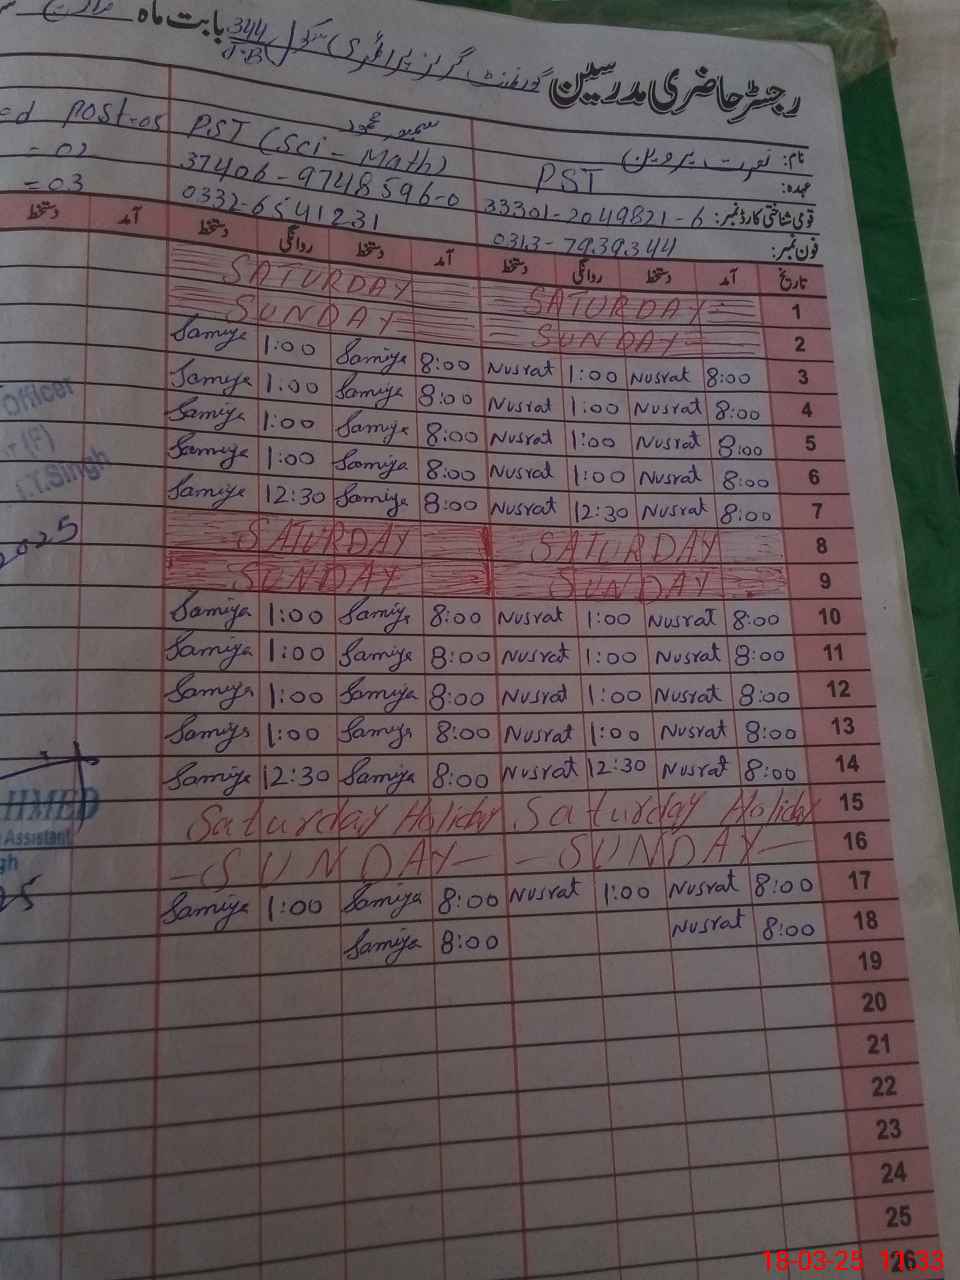 رجسٹر حاضری مدرسین گورنمنٹ گرلز پرائمری سکول 344 J-B بابت ماہ
نام: نصرت پروین
عہدہ: PST
قومی شناختی کارڈ نمبر: 33301-2049821-6
فون نمبر: 0313-7939344
PST (Sci-Math)
37406-9748596-0
0332-6541231
ed post=05
=02
=03
تاریخ آمد دستخط روانگی دستخط آمد دستخط روانگی دستخط آمد دستخط
SATURDAY SATURDAY 1
SUNDAY SUNDAY 2
Samiya 1:00 Samiya 8:00 Nusrat 1:00 Nusrat 8:00 3
Samiya 1:00 Samiya 8:00 Nusrat 1:00 Nusrat 8:00 4
Samiya 1:00 Samiya 8:00 Nusrat 1:00 Nusrat 8:00 5
Samiya 1:00 Samiya 8:00 Nusrat 1:00 Nusrat 8:00 6
Samiya 12:30 Samiya 8:00 Nusrat 12:30 Nusrat 8:00 7
SATURDAY SATURDAY 8
SUNDAY SUNDAY 9
Samiya 1:00 Samiya 8:00 Nusrat 1:00 Nusrat 8:00 10
Samiya 1:00 Samiya 8:00 Nusrat 1:00 Nusrat 8:00 11
Samiya 1:00 Samiya 8:00 Nusrat 1:00 Nusrat 8:00 12
Samiya 1:00 Samiya 8:00 Nusrat 1:00 Nusrat 8:00 13
Samiya 12:30 Samiya 8:00 Nusrat 12:30 Nusrat 8:00 14
Saturday Holiday Saturday Holiday 15
-SUNDAY- -SUNDAY- 16
Samiya 1:00 Samiya 8:00 Nusrat 1:00 Nusrat 8:00 17
Samiya 8:00 Nusrat 8:00 18
19
20
21
22
23
24
25
26
Officer
(F)
T.T.Singh
2025
HMED
Assistant
gh
25
18-03-25 11:33